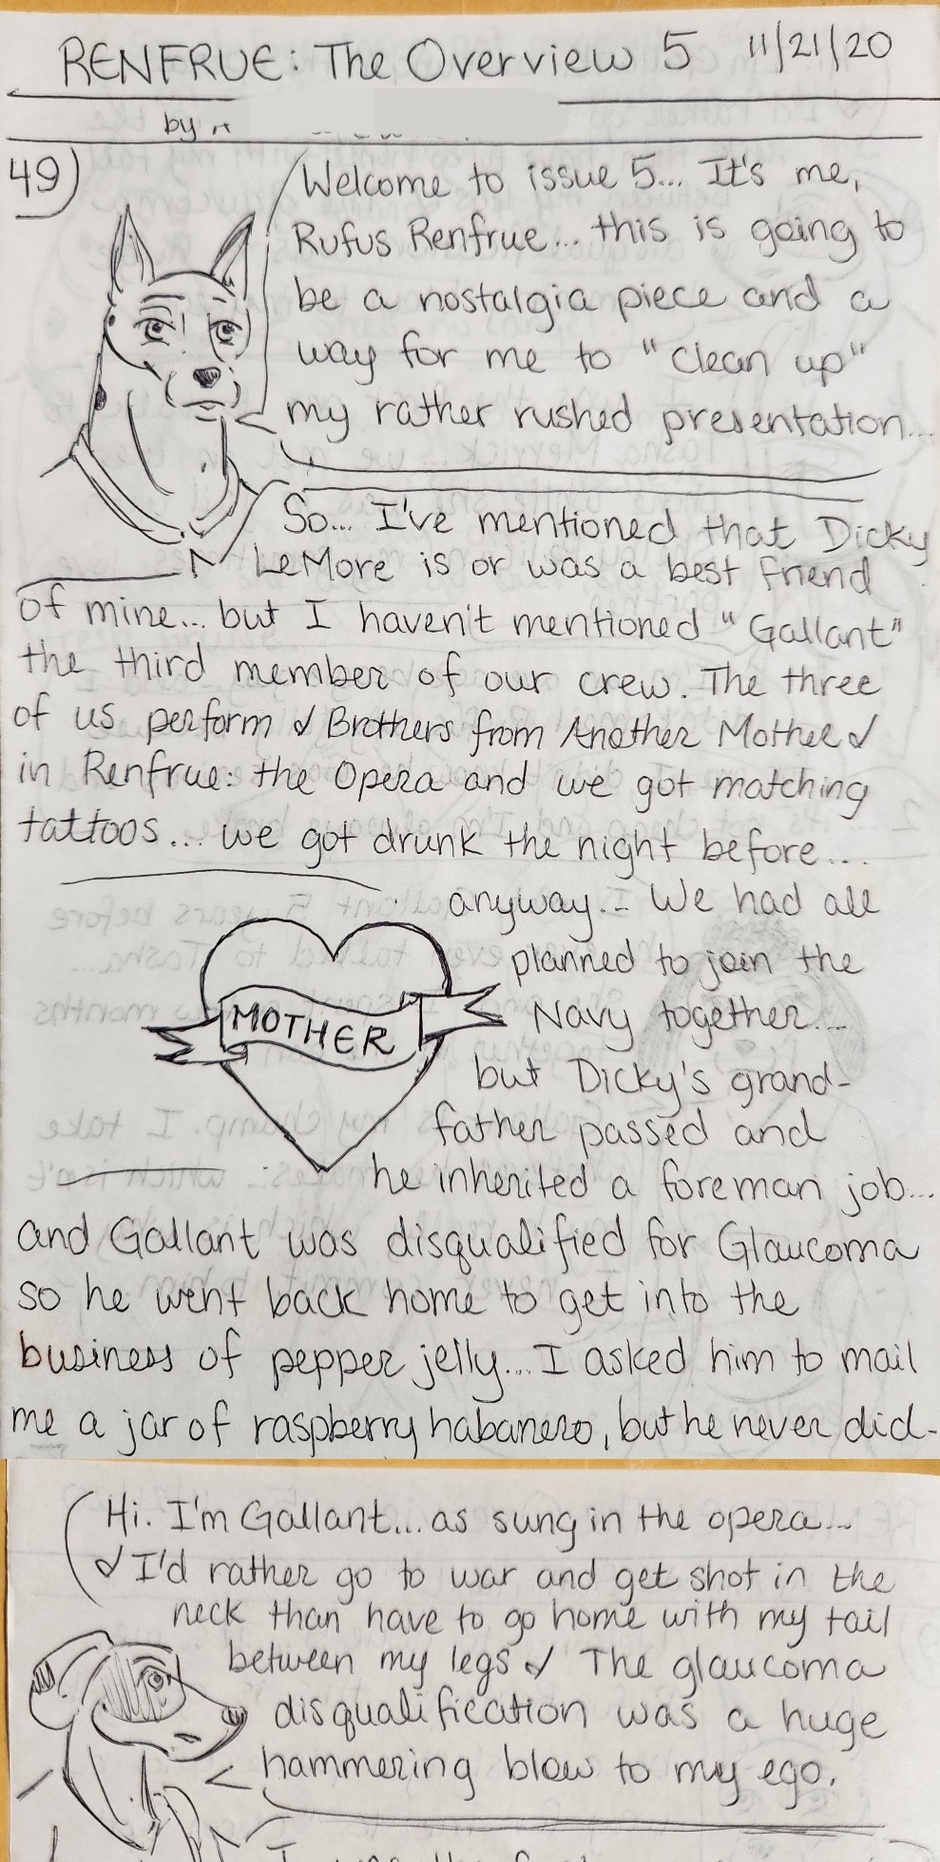 RENFRUE: The Overview 5 11/21/20
by
49)
Welcome to issue 5... It's me,
Rufus Renfrue... this is going to
be a nostalgia piece and a
way for me to "clean up"
my rather rushed presentation...
So... I've mentioned that Dicky
LeMore is or was a best friend
of mine... but I haven't mentioned "Gallant"
the third member of our crew. The three
of us perform ♪ Brothers from Another Mother ♪
in Renfrue: the Opera and we got matching
tattoos... we got drunk the night before...
anyway... We had all
planned to join the
MOTHER
Navy together...
but Dicky's grand-
father passed and
he inherited a foreman job...
and Gallant was disqualified for Glaucoma
so he went back home to get into the
business of pepper jelly... I asked him to mail
me a jar of raspberry habanero, but he never did-
Hi. I'm Gallant... as sung in the opera...
♪ I'd rather go to war and get shot in the
neck than have to go home with my tail
between my legs ♪ The glaucoma
disqualification was a huge
hammering blow to my ego.